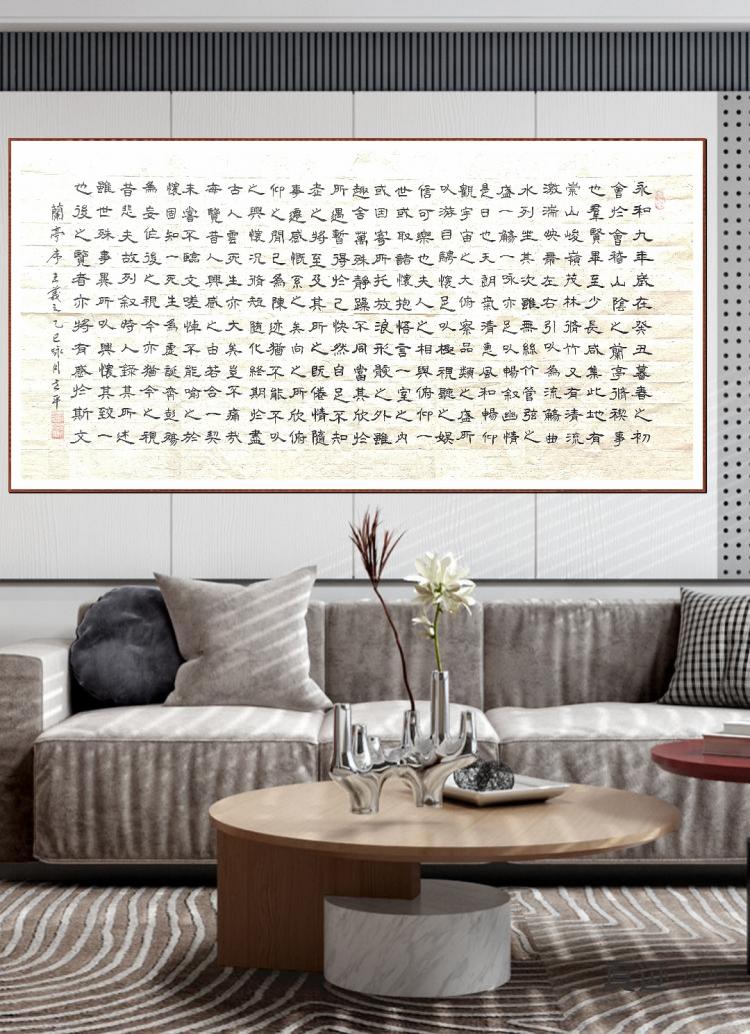 永和九年歲在癸丑暮春之初
會於會稽山陰之蘭亭脩禊事
也羣賢畢至少長咸集此地有
崇山峻嶺茂林脩竹又有清流
激湍映帶左右引以為流觴曲
水列坐其次雖無絲竹管弦之
盛一觴一咏亦足以暢叙幽情
是日也天朗氣清惠風和暢仰
觀宇宙之大俯察品類之盛所
以游目騁懷足以極視聽之娛
信可樂也夫人之相與俯仰一
世或取諸懷抱悟言一室之內
或因寄所托放浪形骸之外雖
趣舍萬殊靜躁不同當其欣於
所遇暫得於己快然自足不知
老之將至及其所之既倦情隨
事遷感慨系之矣向之所欣俯
仰之間已為陳迹猶不能不以
之興懷況脩短隨化終期於盡
古人雲死生亦大矣豈不痛哉
每覽昔人興感之由若合一契
未嘗不臨文嗟悼不能喻之於
懷固知一死生為虛誕齊彭殤
為妄作後之視今亦猶今之視
昔悲夫故列叙時人錄其所述
雖世殊事異所以興懷其致一
也後之覽者亦將有感於斯文
蘭亭序王羲之乙巳